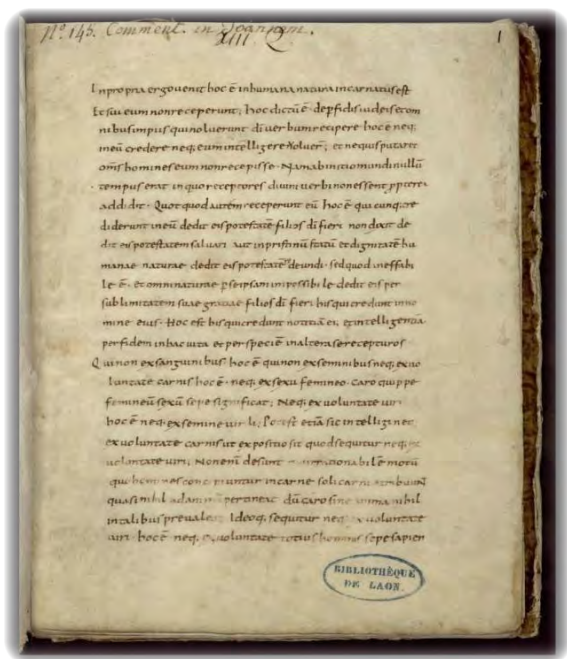 Nº 145. Comment. in Joannem.
XIII. 1
In propria ergo venit hoc ē in humana natura incarnatus est
Et sui eum non receperunt; hoc dictū ē de pfidis iudeis et om
nibus impiis qui noluerunt dī verbum recipere hoc ē neq;
in eū credere neq; eum intelligere voluer; et ne quis putaret
om̄s homines eum non recepisse. Nam ab initio mundi nullū
tempus erat in quo receptores divini verbi non essent ppterea
addidit. Quotquod autem receperunt eū hoc ē qui cunq; cre
diderunt in eū dedit eis potestatē filios dī fieri non dixit de
dit eis potestatem salvari aut in pristinū statū et dignitatē hu
manae naturae dedit eis potestatē deundi. sed quod ineffabi
le ē. et omni naturae p se ipsam impossibile dedit eis per
sublimitatem suae gratiae filios dī fieri his qui credunt in no
mine eius. Hoc est his qui credunt notitiā ei; et intelligentiā
per fidem in hac vita et per speciē in altera se recepturos
Qui non ex sanguinibus hoc ē qui non ex seminibus neq; ex vo
luntate carnis hoc ē. neq; ex sexu femineo. caro quippe
femineū sexū sepe significat; Neq; ex voluntate viri
hoc ē neq; ex semine virili; Potest etiā sic intelligi nec
ex voluntate carnis ut expositio sit quod sequitur neq;
voluntate viri; Non enī desunt irrationabilē motū
quo homines concipiuntur in carne soli carni
quasi nihil ad animā pertineat dū caro sine anima nihil
in talibus prevaleat Ideoq; sequitur neq; ex voluntate
viri. hoc ē neq; ex voluntate totius hominis sepe sapien
BIBLIOTHÈQUE
DE LAON.